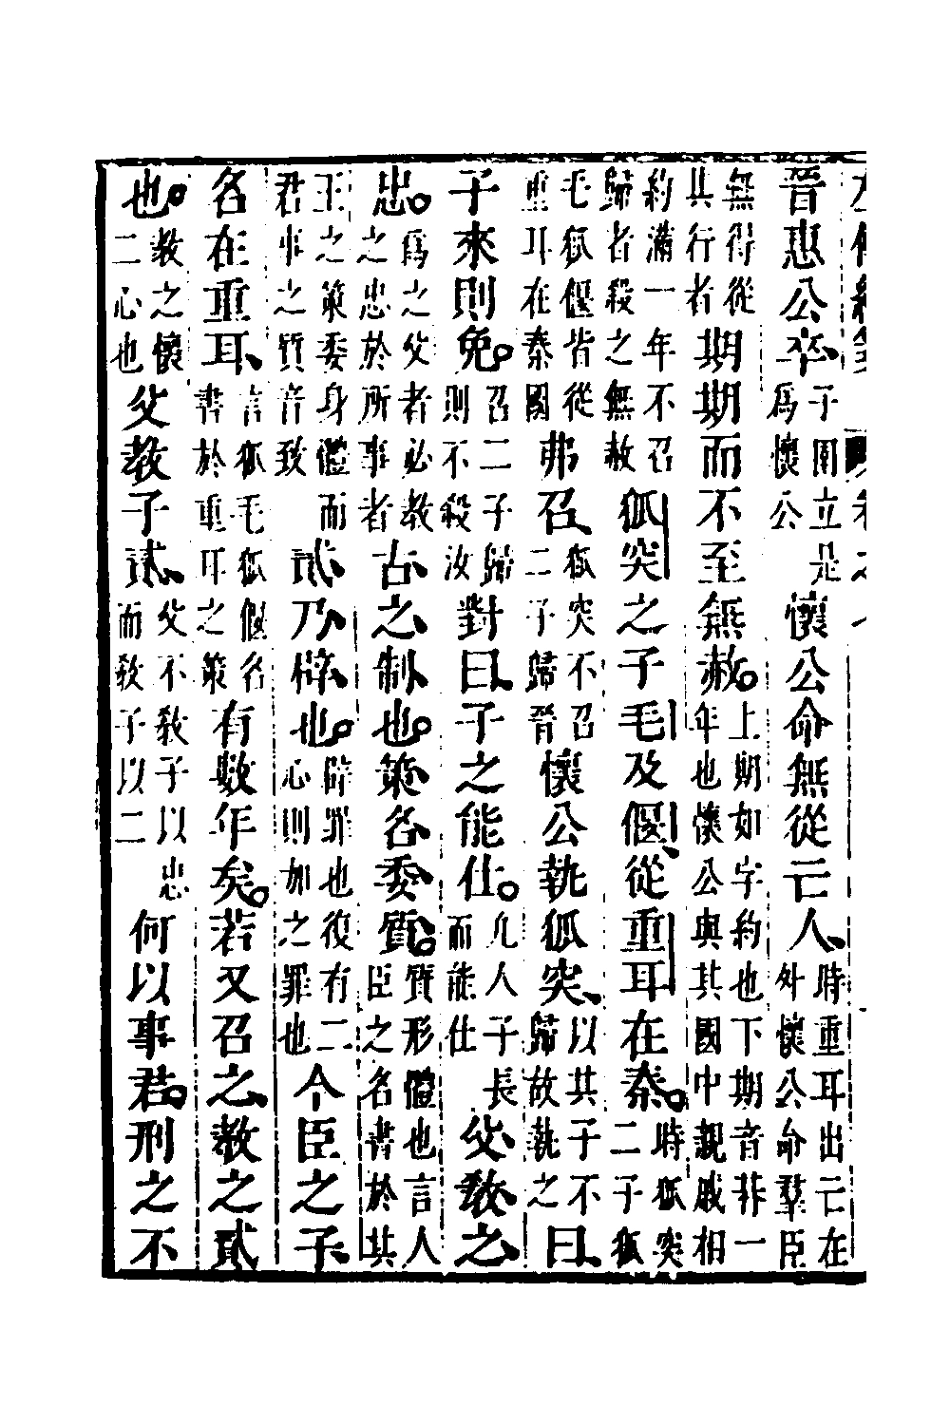 晉惠公卒、子圉立是爲懷公懷公命無從亡人、時重耳出亡在外懷公命羣臣
無得從其行者期期而不至無赦。上期如字約也下期音朞一年也懷公與其國中親戚相
約滿一年不召歸者殺之無赦狐突之子毛及偃、從重耳在秦。時狐突二子狐
毛狐偃皆從重耳在秦國弗召、狐突不召二子歸晉懷公執狐突、以其子不歸故執之曰、
子來則免。召二子歸則不殺汝對曰、子之能仕。凡人子長而能仕父敎之、
忠。爲之父者必教之忠於所事者古之制也。策名、委質、質形體也言人臣之名書於其
王之策委身體而君事之質音致貳、乃辟也。辟罪也復有二心則加之罪也今臣之子、
名在重耳、言狐毛狐偃名書於重耳之策有數年矣。若又召之、教之貳
也。教之懷二心也父教子貳、父不敎子以忠而敎子以二何以事君。刑之不